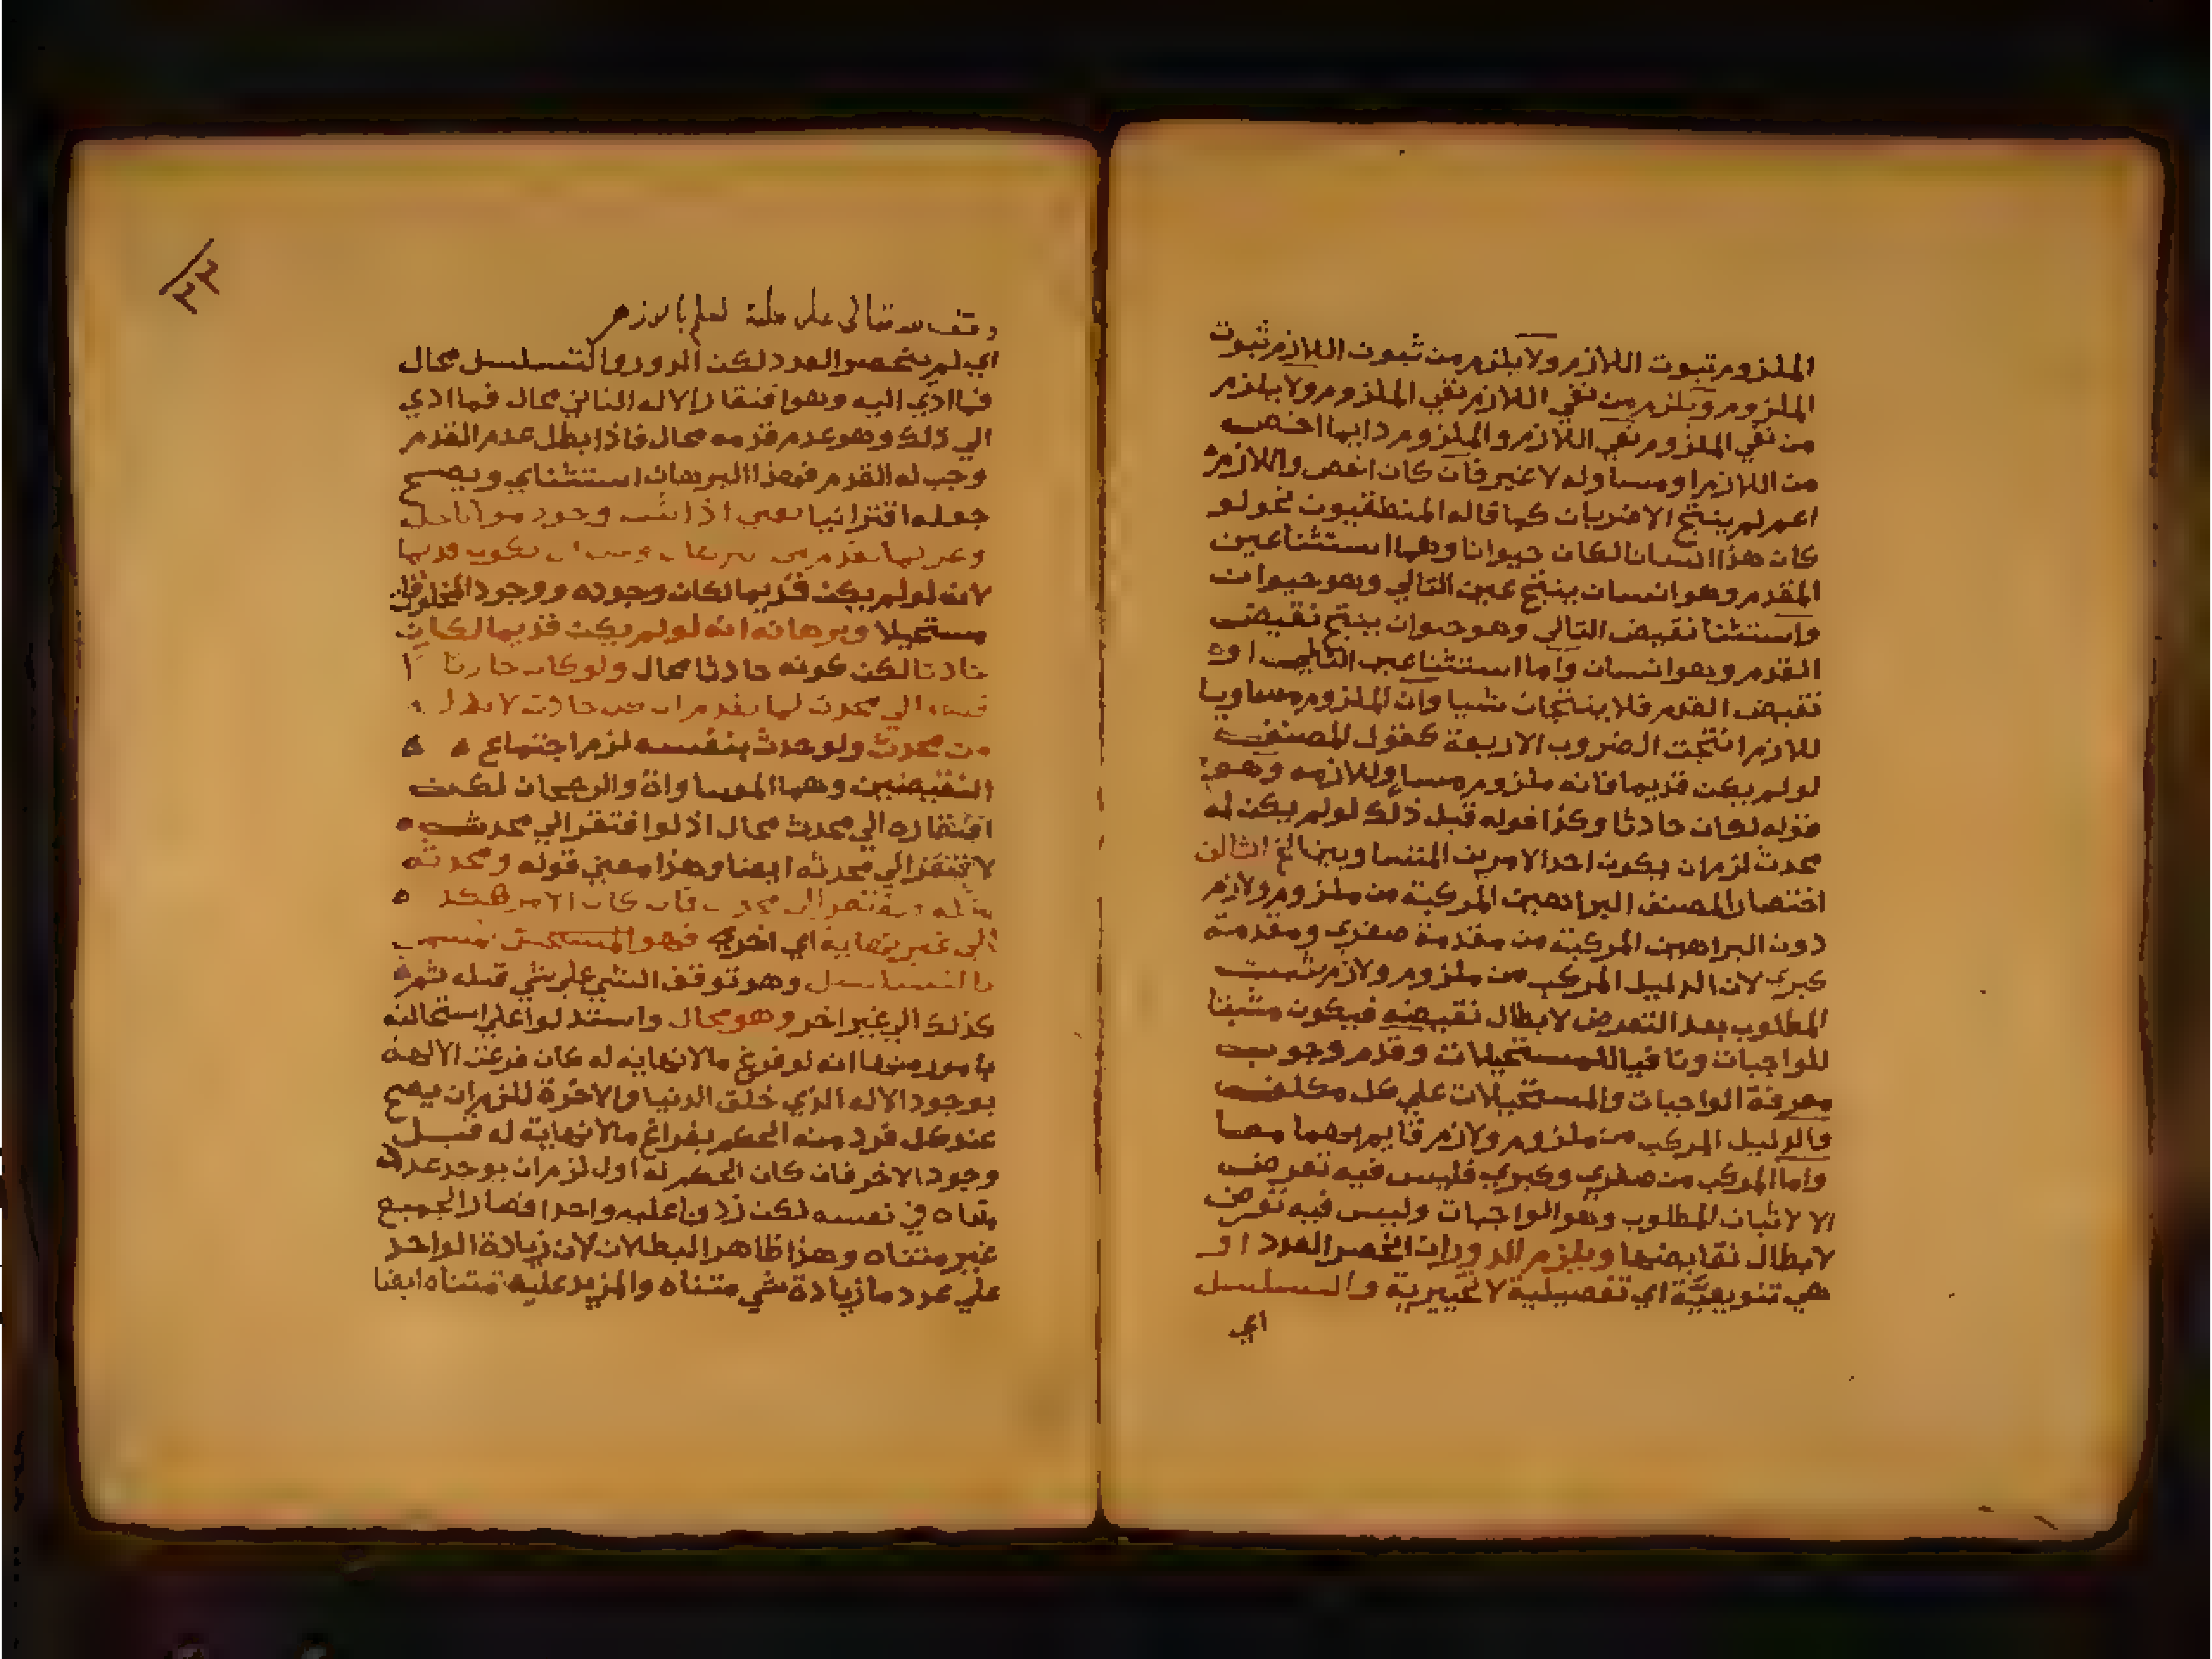 الملزوم ثبوت اللازم ولا يلزم من ثبوت اللازم ثبوت
الملزوم ويلزم من نفي اللازم نفي الملزوم ولا يلزم
من نفي الملزوم نفي اللازم والملزوم دايما اخص
من اللازم او مساو له لا غير فان كان اخص واللازم
اعم لم ينتج الا ضربان كما قاله المنطقيون نحو لو
كان هذا انسان لكان حيوانا وهما استثنا عين
المقدم وهو انسان ينتج عين التالي وهو حيوان
واستثنا نقيض التالي وهو حيوان ينتج نقيض
المقدم وهو انسان واما استثنا عين التالي او
نقيض المقدم فلا ينتجان شيا وان الملزوم مساويا
للازم انتجت الضروب الاربعة كقول المصنف
لو لم يكن قديما فانه ملزوم مساو للازمه وهو
قوله لكان حادثا وكذا قوله قبل ذلك لو لم يكن له
محدث لزم ان يكون احد الامرين المتساويين الخ
اختصار المصنف البراهين المركبة من ملزوم ولازم
دون البراهين المركبة من مقدمة صغري ومقدمة
كبري لان الدليل المركب من ملزوم ولازم يثبت
المطلوب بعد التعرض لابطال نقيضه فيكون مثبتا
للواجبات ونافيا للمستحيلات وقدم وجوب
معرفة الواجبات والمستحيلات علي كل مكلف
فالدليل المركب من ملزوم ولازم قايم بهما معا
واما المركب من صغري وكبري فليس فيه تعرض
الا لاثبات المطلوب وهو الواجبات وليس فيه تعرض
لابطال نقايضها ويلزم الدور ان انحصر العدد او
هي تنويعية اي تفصيلية لا تخييرية والتسلسل
اي
٢٢
وقف لله تعالى على طلبة العلم بالازهر
اي لم ينحصر العدد لكن الدور والتسلسل محال
فما ادي اليه وهو افتقار الاله الثاني محال فما ادي
الي ذلك وهو عدم قدمه محال فاذا بطل عدم القدم
وجب له القدم فهذا البرهان استثناي ويصح
جعله اقترانيا يعني اذا وجود مولانا جل
وعز لما تقدم من ان يكون قديما
لانه لو لم يكن قديما لكان وجوده ووجود المخلوقات
مستحيلا وبرهانه انه لو لم يكن قديما لكان
حادثا لكن كونه حادثا محال ولو كان حادثا
الي محدث لما تقدم ان كل حادث لا بد له
من محدث ولو حدث بنفسه لزم اجتماع
النقيضين وهما المساواة والرجحان لكن
افتقاره الي محدث محال اذ لو افتقر الي محدث
لافتقر الي محدثه ايضا وهذا معني قوله ومحدثه
مثله فيفتقر الي محدث فان كان الامر هكذا
الي غير نهاية اي اخرة فهو
بالتسلسل وهو توقف الشي علي شي قبله ثم
كذلك الي غير اخر وهو محال واستدلوا علي استحالته
بامور منها انه لو فرغ ما لا نهاية له كان فرعن الالهة
بوجود الاله الذي خلق الدنيا والاخرة للزم ان يصح
عند كل فرد منه الحكم بفراغ ما لا نهاية له قبل
وجود الاخر فان كان الحكم له اول لزم ان يوجد عدد
متناه في نفسه لكن زدنا عليه واحدا فصار الجميع
غير متناه وهذا ظاهر البطلان لان زيادة الواحد
علي عدد ما زيادة شي متناه والمزيد عليه متناه ايضا